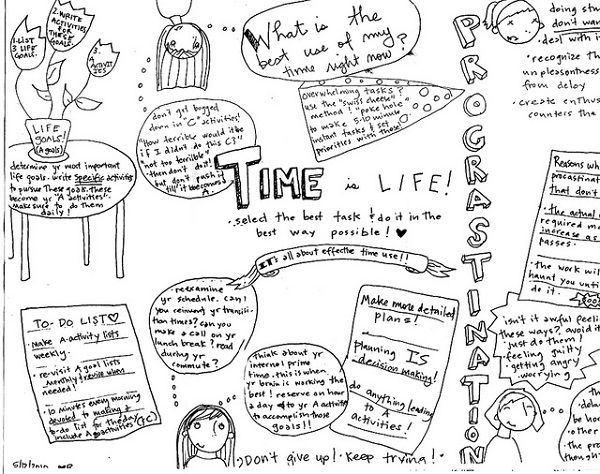 1. LIST
3 LIFE
GOALS.
2. WRITE
ACTIVITIES
FOR
THESE
GOALS.
3.
A
ACTIVIT
IES
LIFE
GOALS!
(A goals)
determine yr most important
life goals. write specific activities
to pursue these goals. these
become yr "A activities".
Make sure to do them
daily!
don't get bogged
down in "C" activities!
"How terrible would it be
if I didn't do this C?"
not too terrible?
then don't do it!
but don't push it
till it becomes
A.
What is the
best use of my
time right now?
overwhelming tasks?
use the "swiss cheese"
method! "poke hole"
to make 5-10 minute
instant tasks & set
priorities with these!
TIME is LIFE!
• select the best task & do it in the
best way possible! ♥
It's all about effective time use!!
TO-DO LIST♡
• Make A-activity lists
weekly.
• re-visit A goal lists
monthly & revise when
needed!
• 10 minutes every morning
devoted to making a
to-do list for the day
include A activities
• reexamine
yr schedule. can
yr
tion times? can you
make a call on yr
lunch break? read
during yr
commute?
think about yr
internal prime
time. this is when
yr brain is working the
best! reserve an hour
a day of yr A activity
to accomplish those
goals!!
Make more detailed
plans!
planning IS
decision making!
do anything leading
to A
activities!
Don't give up! Keep trying!
PROGRASTINATION
doing stu
don't wan
• deal with i
• recognize th
unpleasantness
from delay
• create enthus
counters the
Reasons wh
procrastina
that don't
• the actual
required m
increase as
passes.
• the work will
haunt you unti
do it.
isn't it awful feeli
these ways? avoid it
just do them!
• feeling guilty
• getting angry
• worrying
• the
dela
be ho
other
• the pro
though